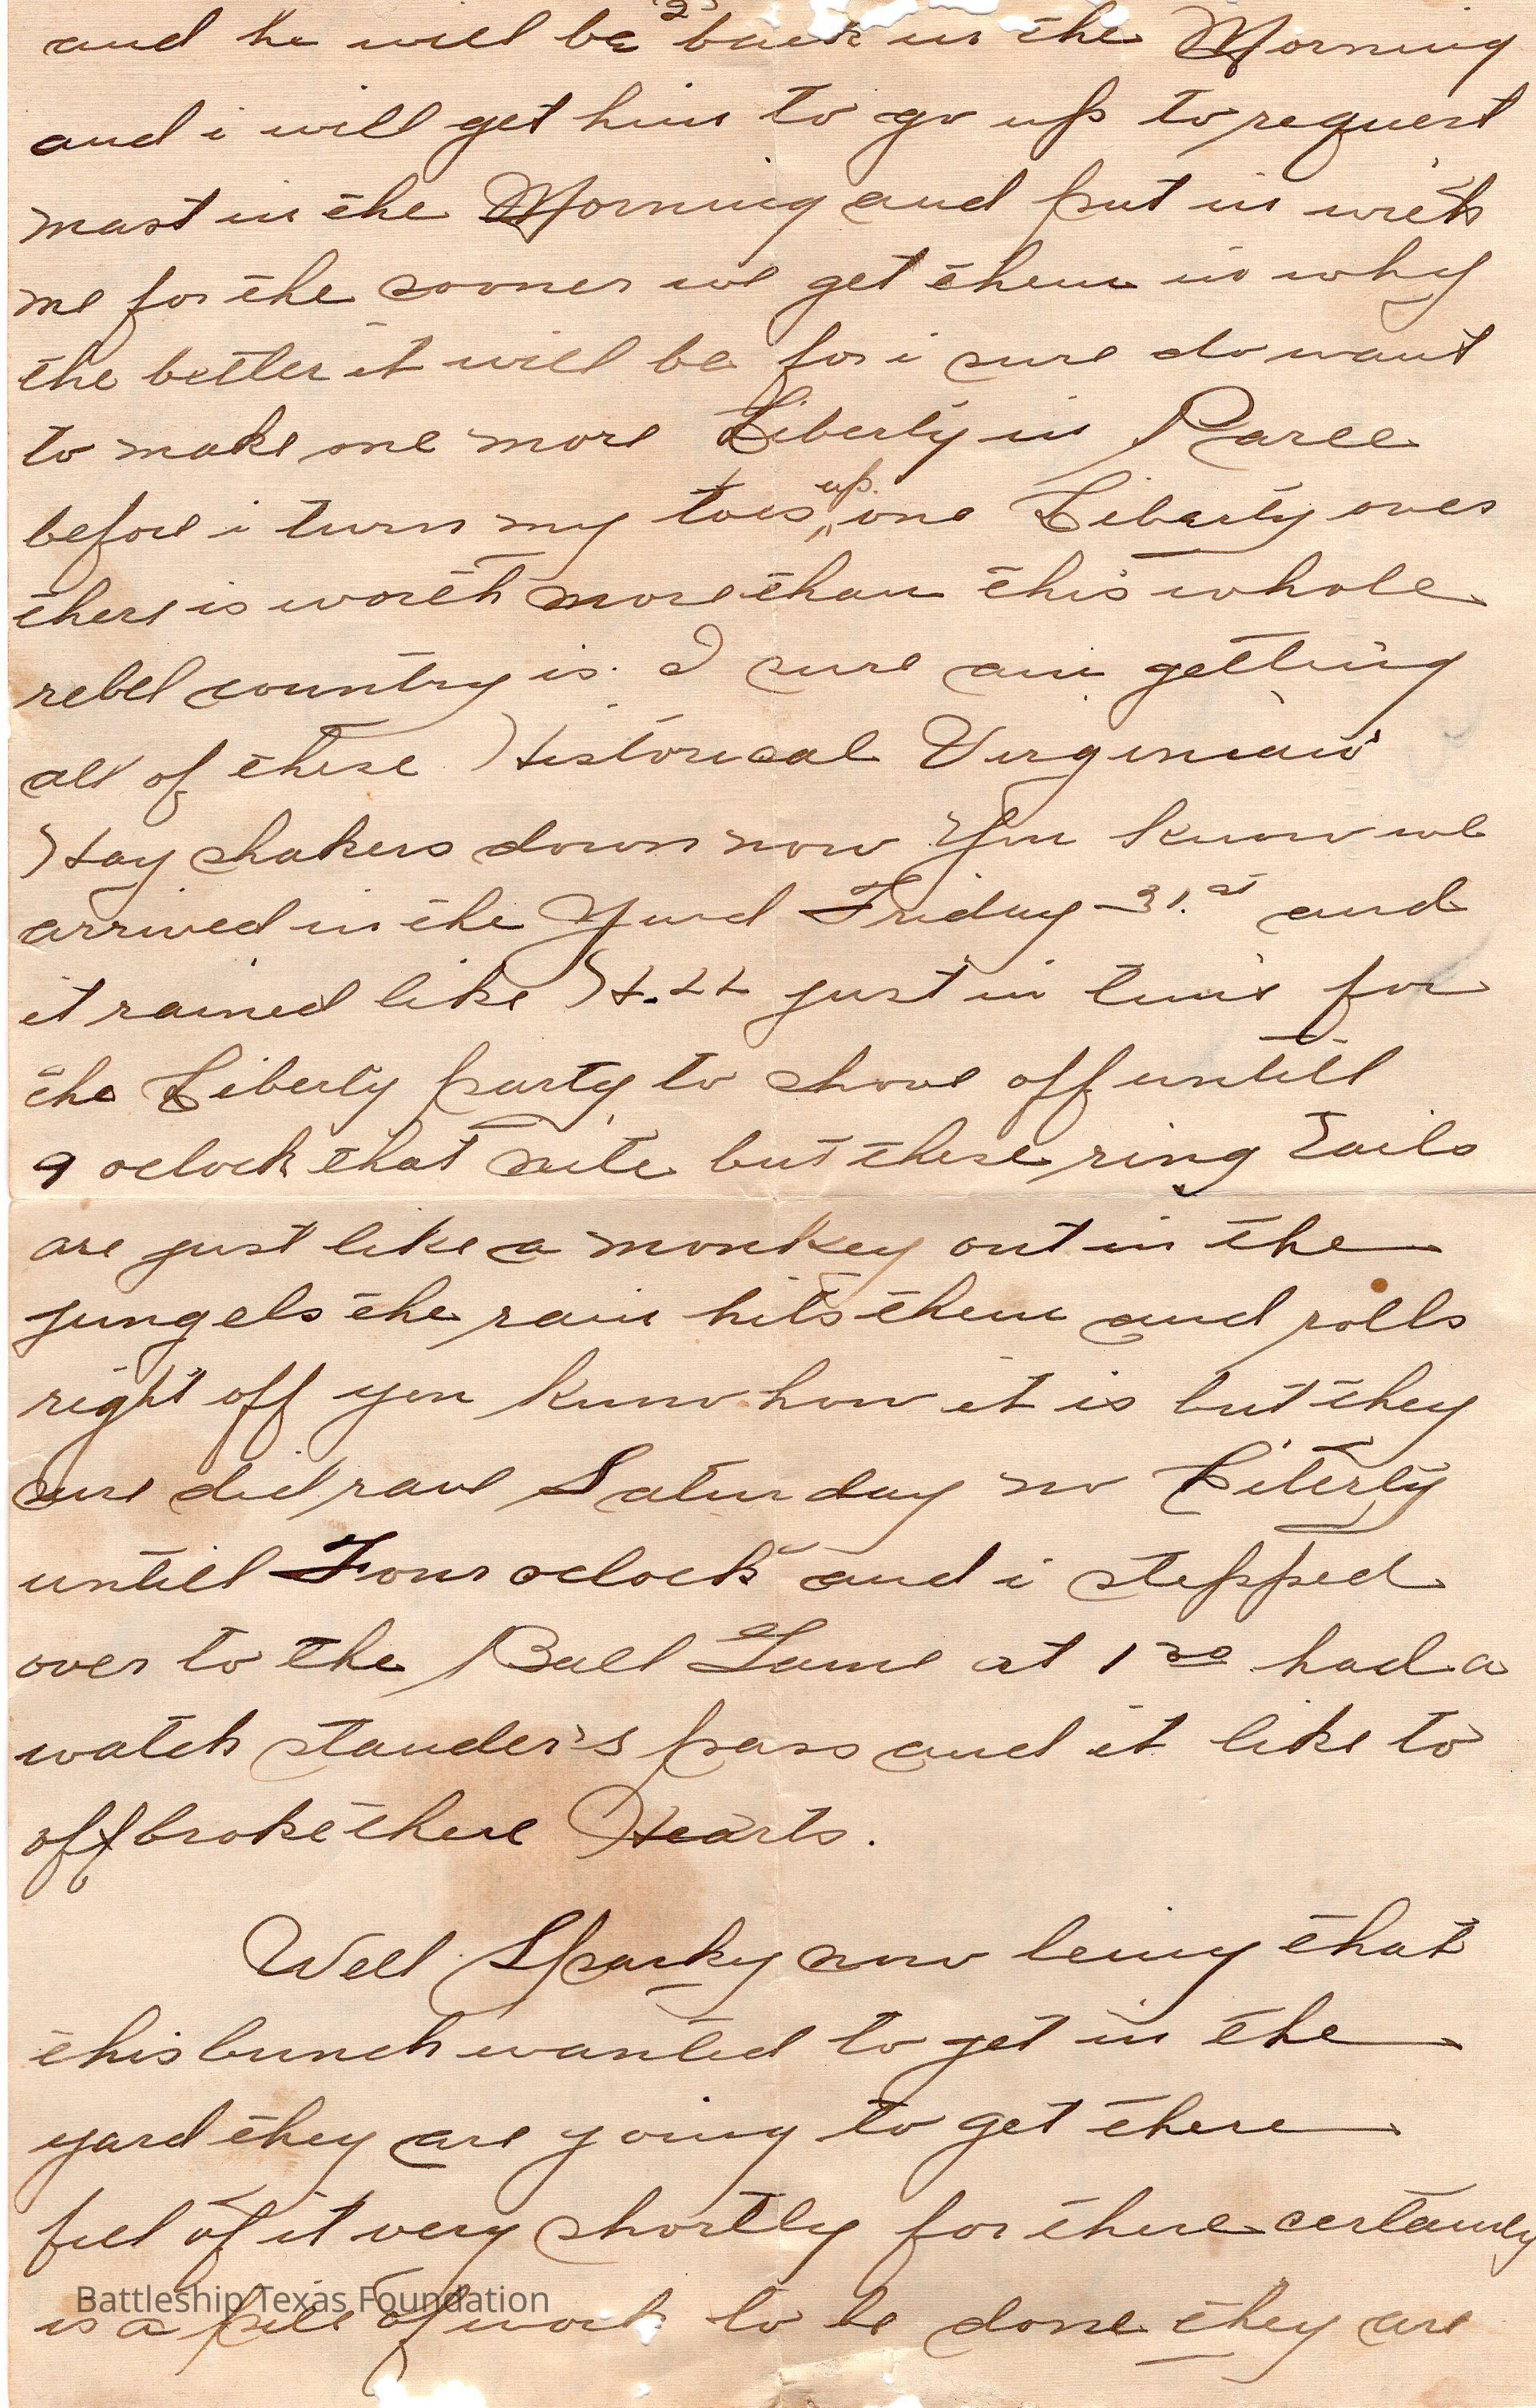 "2"
and he will be back in the Morning
and i will get him to go up to request
mast in the Morning and put in with
me for the sooner we get them in why
the better it will be for i sure do want
to make one more Liberty in Paree
before i turn my toes up. one Liberty over
there is worth more than this whole
rebel country is. I sure am getting
all of these Historical Virginian
Hay shakers down now You know we
arrived in the Yard Friday 31.st and
it rained like H.LL just in time for
the Liberty party to shove off untill
9 oclock that nite but these ring tails
are just like a monkey out in the
jungels the rain hits them and rolls
right off you know how it is but they
sure did rave Saturday no Liberty
untill Four oclock and i stepped
over to the Ball Game at 1 30 had a
watch stander's pass and it like to
off broke there Hearts.
Well Sparky now being that
this bunch wanted to get in the
yard they are going to get there
fill of it very shortly for there certainly
is a pile of work to be done they are
Battleship Texas Foundation